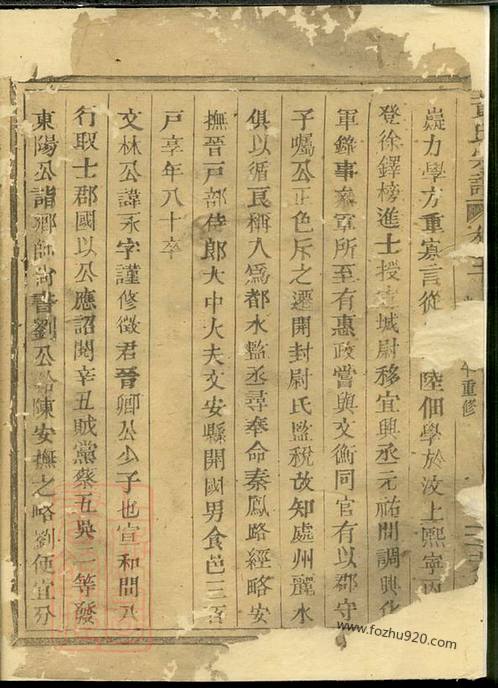 嶷力學方重寡言從 陸佃學於汶上熙寧丙
登徐鐸榜進士授 城尉移宜興丞元祐間調興化
軍錄事參軍所至有惠政嘗與文衡同官有以郡守
子囑公正色斥之遷開封尉氏監稅故知處州麗水
俱以循良稱入為都水監丞尋奉命秦鳳路經略安
撫晉戶部侍郎太中大夫文安縣開國男食邑三百
戶享年八十卒
文林公諱永字謹修徵君晉卿公少子也宣和間
行取士郡國以公應詔閱辛丑賊黨蔡五吳二等發
東陽公詣鄉帥尚書劉公 陳安撫之略劉便宜分
重修
www.fozhu920.com